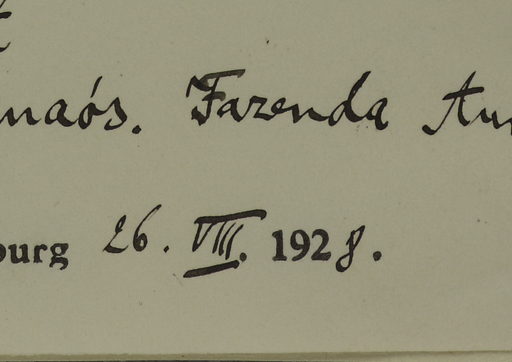 naós. Fazenda Au
burg 26. VIII. 1928.